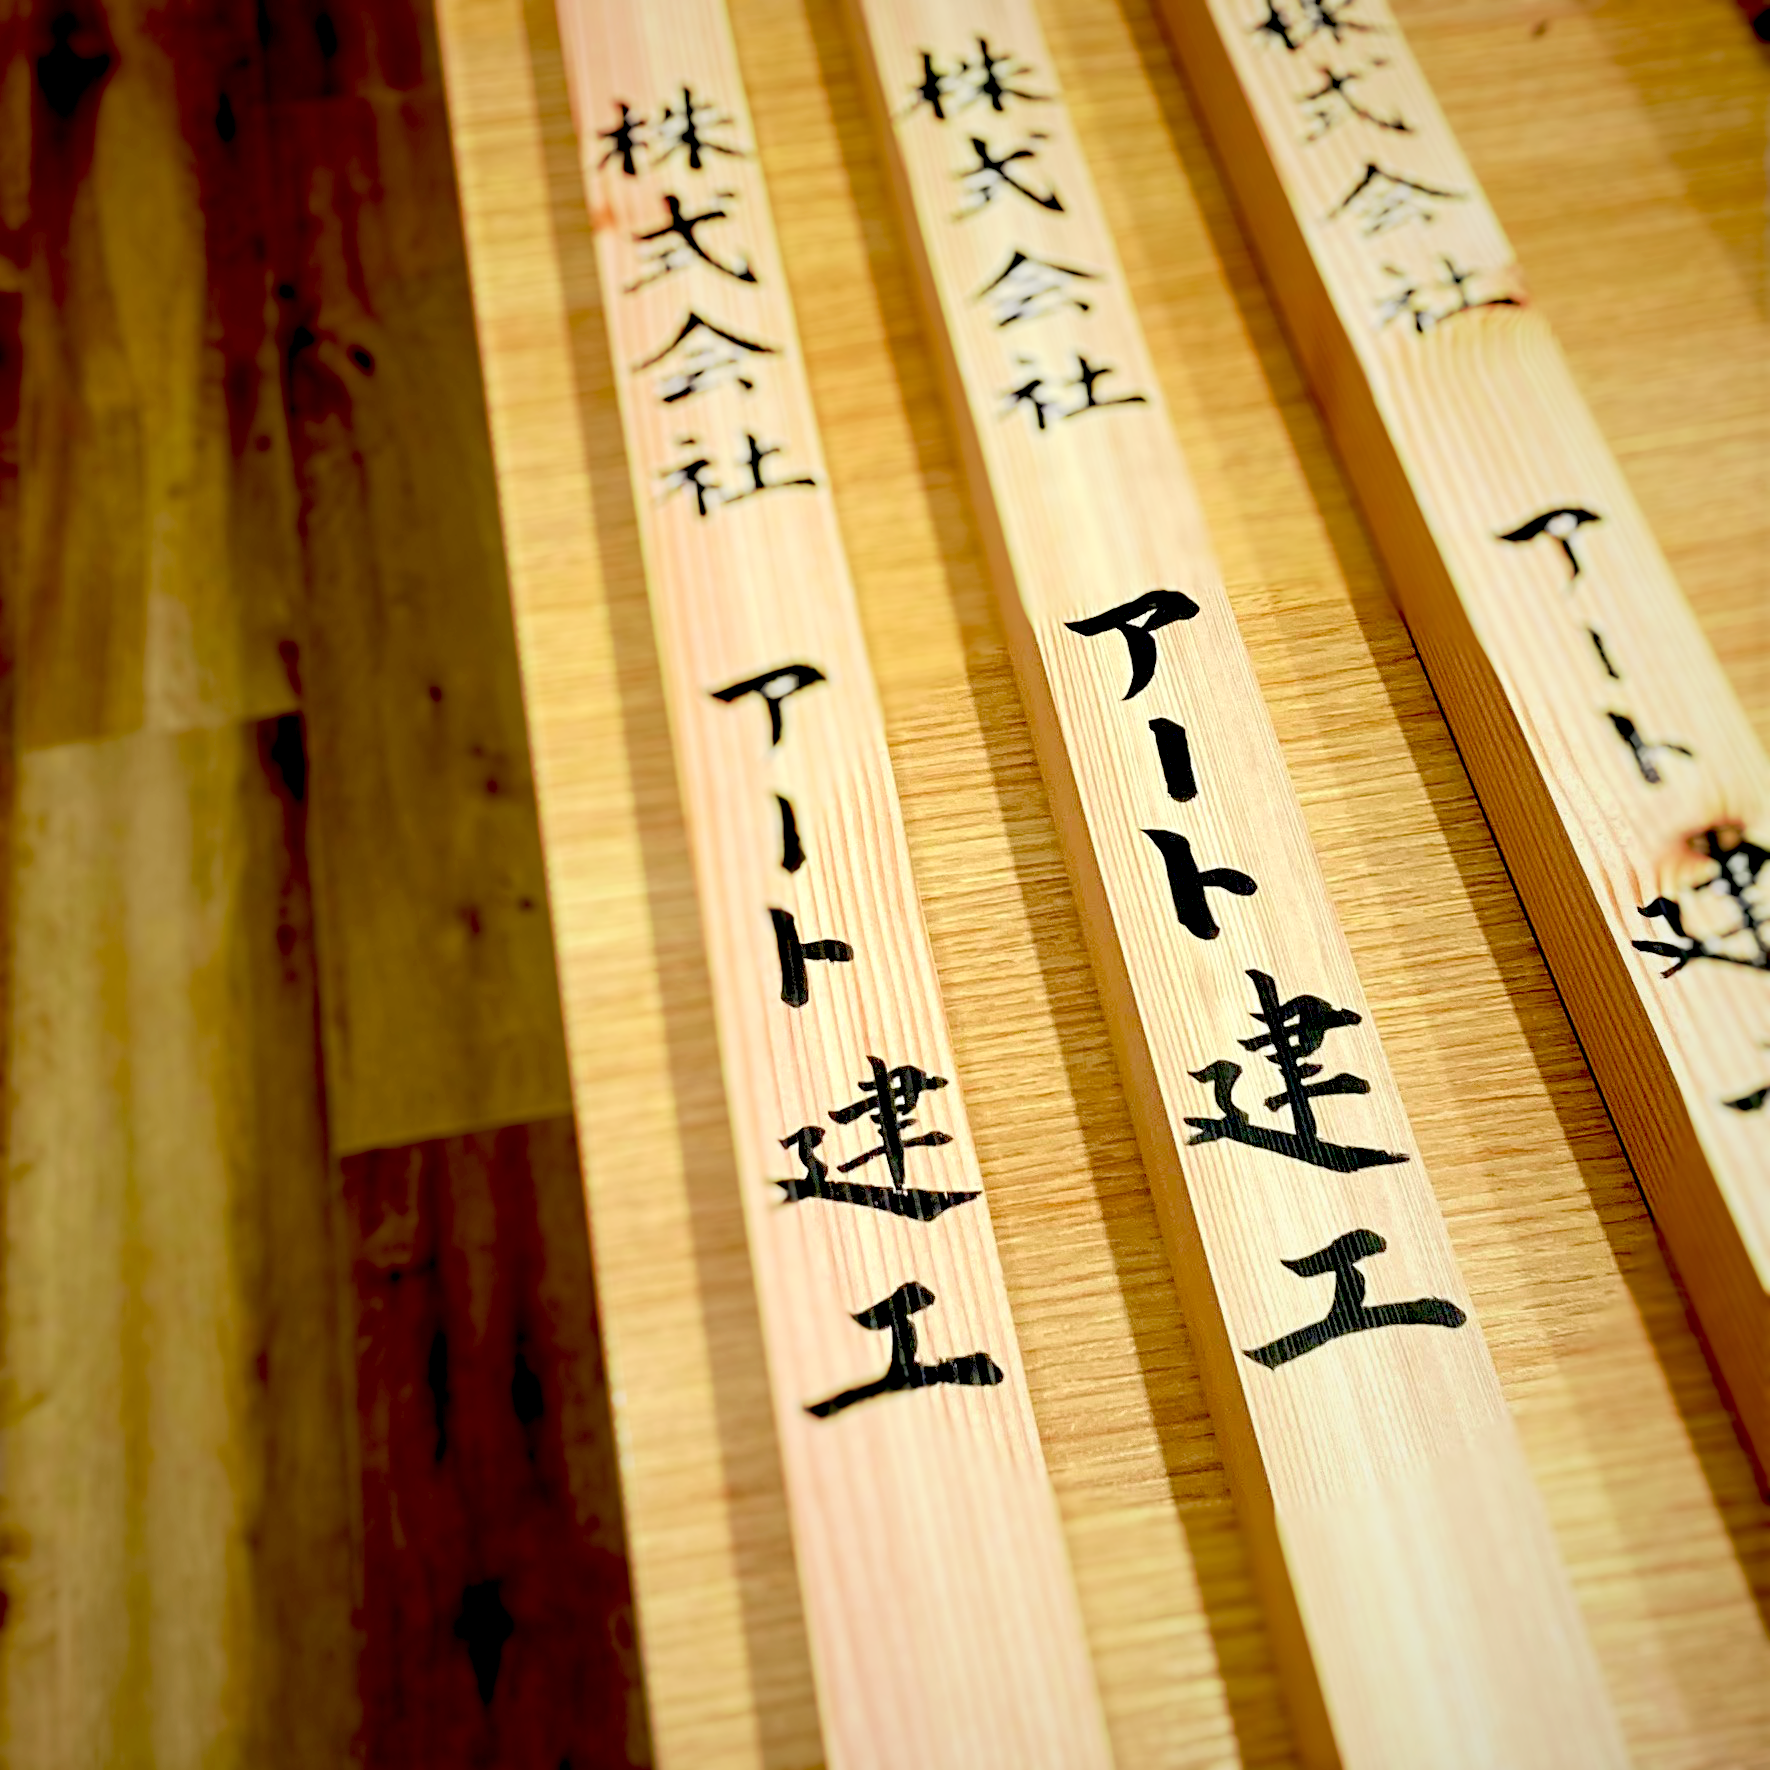 株式会社 アート建工
株式会社 アート建工
株式会社 アート建